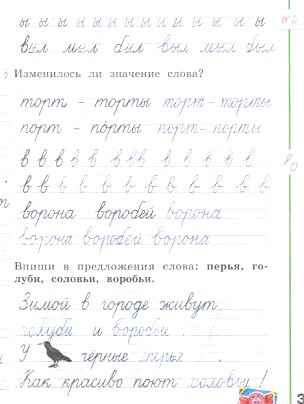 ы ы ы ы ы ы ы ы ы ы ы ы ы
выл мыл был выл мыл был
Изменилось ли значение слова?
торт – торты торт – торты
порт – по́рты порт – порты
в в в в в в в в в в в в в в
в в в в в в в в в в в в в
ворона воробей ворона
ворона воробей ворона
Впиши в предложения слова: перья, го-
луби, соловьи, воробьи.
Зимой в городе живут
голуби и воробьи.
У чёрные перья.
Как красиво поют соловьи!
3